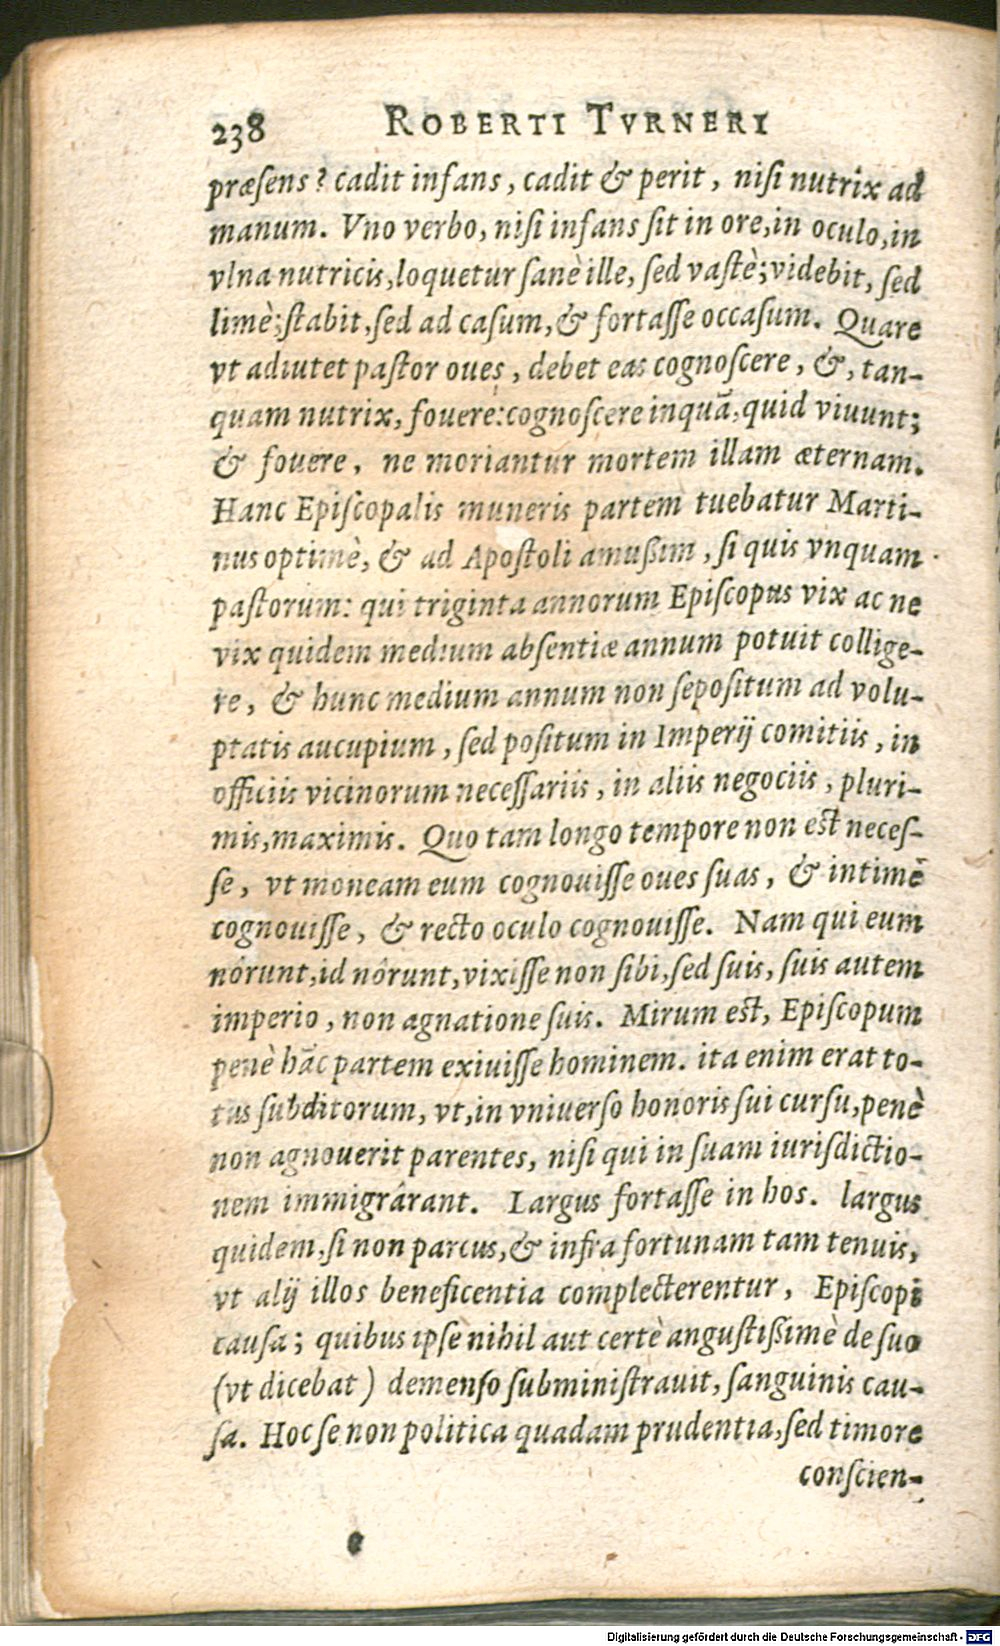 238 ROBERTI TVRNERI
præſens? cadit infans, cadit & perit, niſi nutrix ad
manum. Vno verbo, niſi infans ſit in ore, in oculo, in
vlna nutricis, loquetur ſanè ille, ſed vaſtè; videbit, ſed
limè; ſtabit, ſed ad caſum, & fortaſſe occaſum. Quare
vt adiutet paſtor oues, debet eas cognoſcere, &, tan-
quam nutrix, fouere: cognoſcere inquā, quid viuunt;
& fouere, ne moriantur mortem illam æternam.
Hanc Epiſcopalis muneris partem tuebatur Marti-
nus optimè, & ad Apoſtoli amußim, ſi quis vnquam
paſtorum: qui triginta annorum Epiſcopus vix ac ne
vix quidem medium abſentiæ annum potuit collige-
re, & hunc medium annum non ſepoſitum ad volu-
ptatis aucupium, ſed poſitum in Imperij comitiis, in
officiis vicinorum neceſſariis, in aliis negociis, pluri-
mis, maximis. Quo tam longo tempore non eſt neceſ-
ſe, vt moneam eum cognouiſſe oues ſuas, & intimè
cognouiſſe, & recto oculo cognouiſſe. Nam qui eum
nôrunt, id nôrunt, vixiſſe non ſibi, ſed ſuis, ſuis autem
imperio, non agnatione ſuis. Mirum eſt, Epiſcopum
penè hāc partem exiuiſſe hominem. ita enim erat to-
tus ſubditorum, vt, in vniuerſo honoris ſui curſu, penè
non agnouerit parentes, niſi qui in ſuam iuriſdictio-
nem immigrârant. Largus fortaſſe in hos. largus
quidem, ſi non parcus, & infra fortunam tam tenuis,
vt alij illos beneficentia complecterentur, Epiſcopi
cauſa; quibus ipſe nihil aut certè anguſtißimè de ſuo
(vt dicebat) demenſo ſubminiſtrauit, ſanguinis cau-
ſa. Hoc ſe non politica quadam prudentia, ſed timore
conſcien-
Digitalisierung gefördert durch die Deutsche Forschungsgemeinschaft - DFG